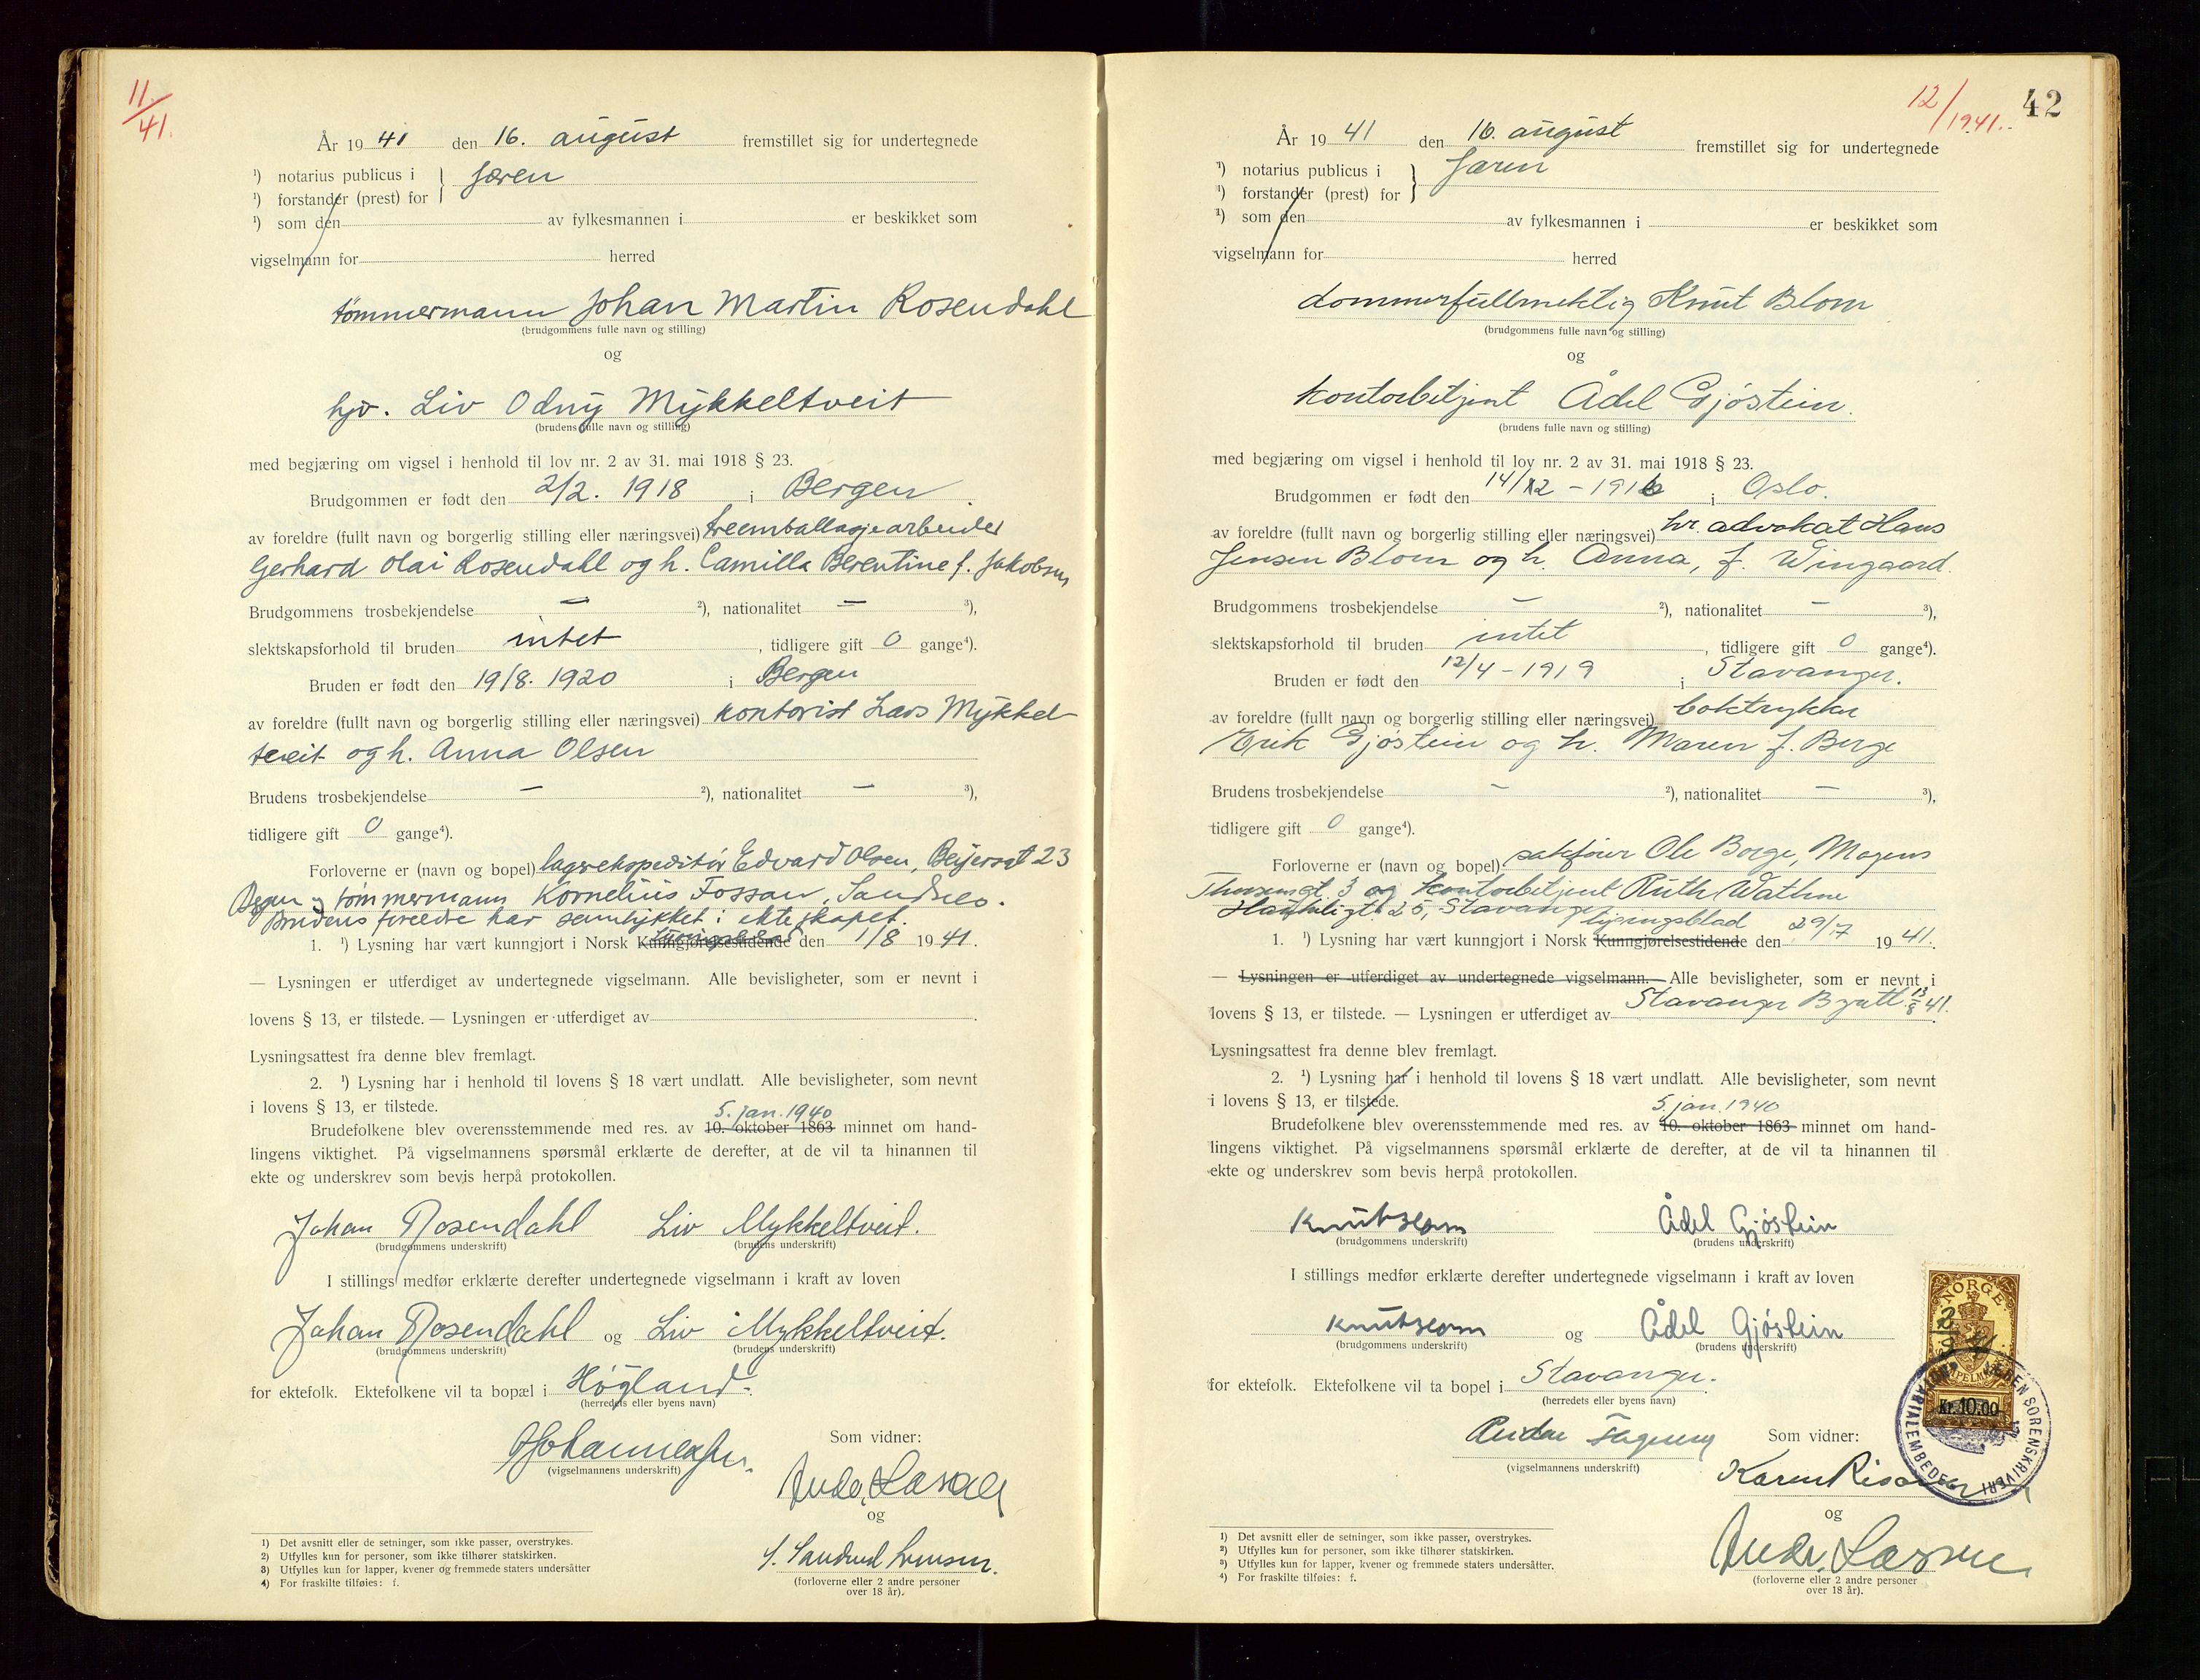 11/41.
År 1941 den 16. august fremstillet sig for undertegnede
¹) notarius publicus i } Jæren
¹) forstander (prest) for
¹) som den av fylkesmannen i er beskikket som
vigselmann for herred
tømmermann Johan Martin Rosendahl
(brudgommens fulle navn og stilling)
og
hjv. Liv Odny Mykkeltveit
(brudens fulle navn og stilling)
med begjæring om vigsel i henhold til lov nr. 2 av 31. mai 1918 § 23.
Brudgommen er født den 2/2. 1918 i Bergen.
av foreldre (fullt navn og borgerlig stilling eller næringsvei) treemballasjearbeider
Gerhard Olai Rosendahl og h. Camilla Berentine f. Jakobsen
Brudgommens trosbekjendelse — ²), nationalitet — ³),
slektskapsforhold til bruden intet, tidligere gift 0 gange⁴).
Bruden er født den 19/8. 1920 i Bergen
av foreldre (fullt navn og borgerlig stilling eller næringsvei) kontorist Lars Mykkel
tveit og h. Anna Olsen
Brudens trosbekjendelse — ²), nationalitet — ³),
tidligere gift 0 gange⁴).
Forloverne er (navn og bopel) lagerekspeditør Edvard Olsen, Beyersgt 23
Bergen og tømmermann Kornelius Fossan, Sandnes.
Brudens foreldre har samtykket i ekteskapet.
1. ¹) Lysning har vært kunngjort i Norsk Kunngjørelsestidende den 1/8 1941.
— Lysningen er utferdiget av undertegnede vigselmann. Alle bevisligheter, som er nevnt i
lovens § 13, er tilstede. — Lysningen er utferdiget av
Lysningsattest fra denne blev fremlagt.
2. ¹) Lysning har i henhold til lovens § 18 vært undlatt. Alle bevisligheter, som nevnt
i lovens § 13, er tilstede.
5. jan. 1940
Brudefolkene blev overensstemmende med res. av 10. oktober 1863 minnet om hand-
lingens viktighet. På vigselmannens spørsmål erklærte de derefter, at de vil ta hinannen til
ekte og underskrev som bevis herpå protokollen.
Johan Rosendahl Liv Mykkeltveit.
(brudgommens underskrift) (brudens underskrift)
I stillings medfør erklærte derefter undertegnede vigselmann i kraft av loven
Johan Rosendahl og Liv Mykkeltveit.
(brudgommens underskrift) (brudens underskrift)
for ektefolk. Ektefolkene vil ta bopæl i Høgland.
(herredets eller byens navn)
Som vidner:
(vigselmannens underskrift)
og
(forloverne eller 2 andre personer
over 18 år).
1) Det avsnitt eller de setninger, som ikke passer, overstrykes.
2) Utfylles kun for personer, som ikke tilhører statskirken.
3) Utfylles kun for lapper, kvener og fremmede staters undersåtter
4) For fraskilte tilføies: f.
12/1941.. 42
År 1941 den 16. august fremstillet sig for undertegnede
¹) notarius publicus i } Jæren
¹) forstander (prest) for
¹) som den av fylkesmannen i er beskikket som
vigselmann for herred
dommerfullmektig Knut Blom
(brudgommens fulle navn og stilling)
og
kontorbetjent Ådel Gjøstein.
(brudens fulle navn og stilling)
med begjæring om vigsel i henhold til lov nr. 2 av 31. mai 1918 § 23.
Brudgommen er født den 14/12 - 1916 i Oslo.
av foreldre (fullt navn og borgerlig stilling eller næringsvei) hr. advokat Hans
Jensen Blom og h. Anna, f. Wingaard.
Brudgommens trosbekjendelse — ²), nationalitet — ³),
slektskapsforhold til bruden intet, tidligere gift 0 gange⁴).
Bruden er født den 12/4 - 1919 i Stavanger.
av foreldre (fullt navn og borgerlig stilling eller næringsvei) boktrykker
Erik Gjøstein og h. Maren f. Berge
Brudens trosbekjendelse — ²), nationalitet — ³),
tidligere gift 0 gange⁴).
Forloverne er (navn og bopel) sakfører Ole Borge, Mogens
3 og kontorbetjent Ruth Wathne
25, Stavanger
lysningsblad
1. ¹) Lysning har vært kunngjort i Norsk Kunngjørelsestidende den 29/7 1941.
— Lysningen er utferdiget av undertegnede vigselmann. — Alle bevisligheter, som er nevnt i
lovens § 13, er tilstede. — Lysningen er utferdiget av Stavanger Byrett 13/8 41.
Lysningsattest fra denne blev fremlagt.
2. ¹) Lysning har i henhold til lovens § 18 vært undlatt. Alle bevisligheter, som nevnt
i lovens § 13, er tilstede.
5. jan. 1940
Brudefolkene blev overensstemmende med res. av 10. oktober 1863 minnet om hand-
lingens viktighet. På vigselmannens spørsmål erklærte de derefter, at de vil ta hinannen til
ekte og underskrev som bevis herpå protokollen.
Knut Blom Ådel Gjøstein
(brudgommens underskrift) (brudens underskrift)
I stillings medfør erklærte derefter undertegnede vigselmann i kraft av loven
Knut Blom og Ådel Gjøstein
(brudgommens underskrift) (brudens underskrift)
for ektefolk. Ektefolkene vil ta bopel i Stavanger.
(herredets eller byens navn)
Som vidner:
(vigselmannens underskrift)
Karen
og
(forloverne eller 2 andre personer
over 18 år).
NORGE
Kr. 10.00
JÆREN SORENSKRIVERI
1) Det avsnitt eller de setninger, som ikke passer, overstrykes.
2) Utfylles kun for personer, som ikke tilhører statskirken.
3) Utfylles kun for lapper, kvener og fremmede staters undersåtter.
4) For fraskilte tilføies: f.